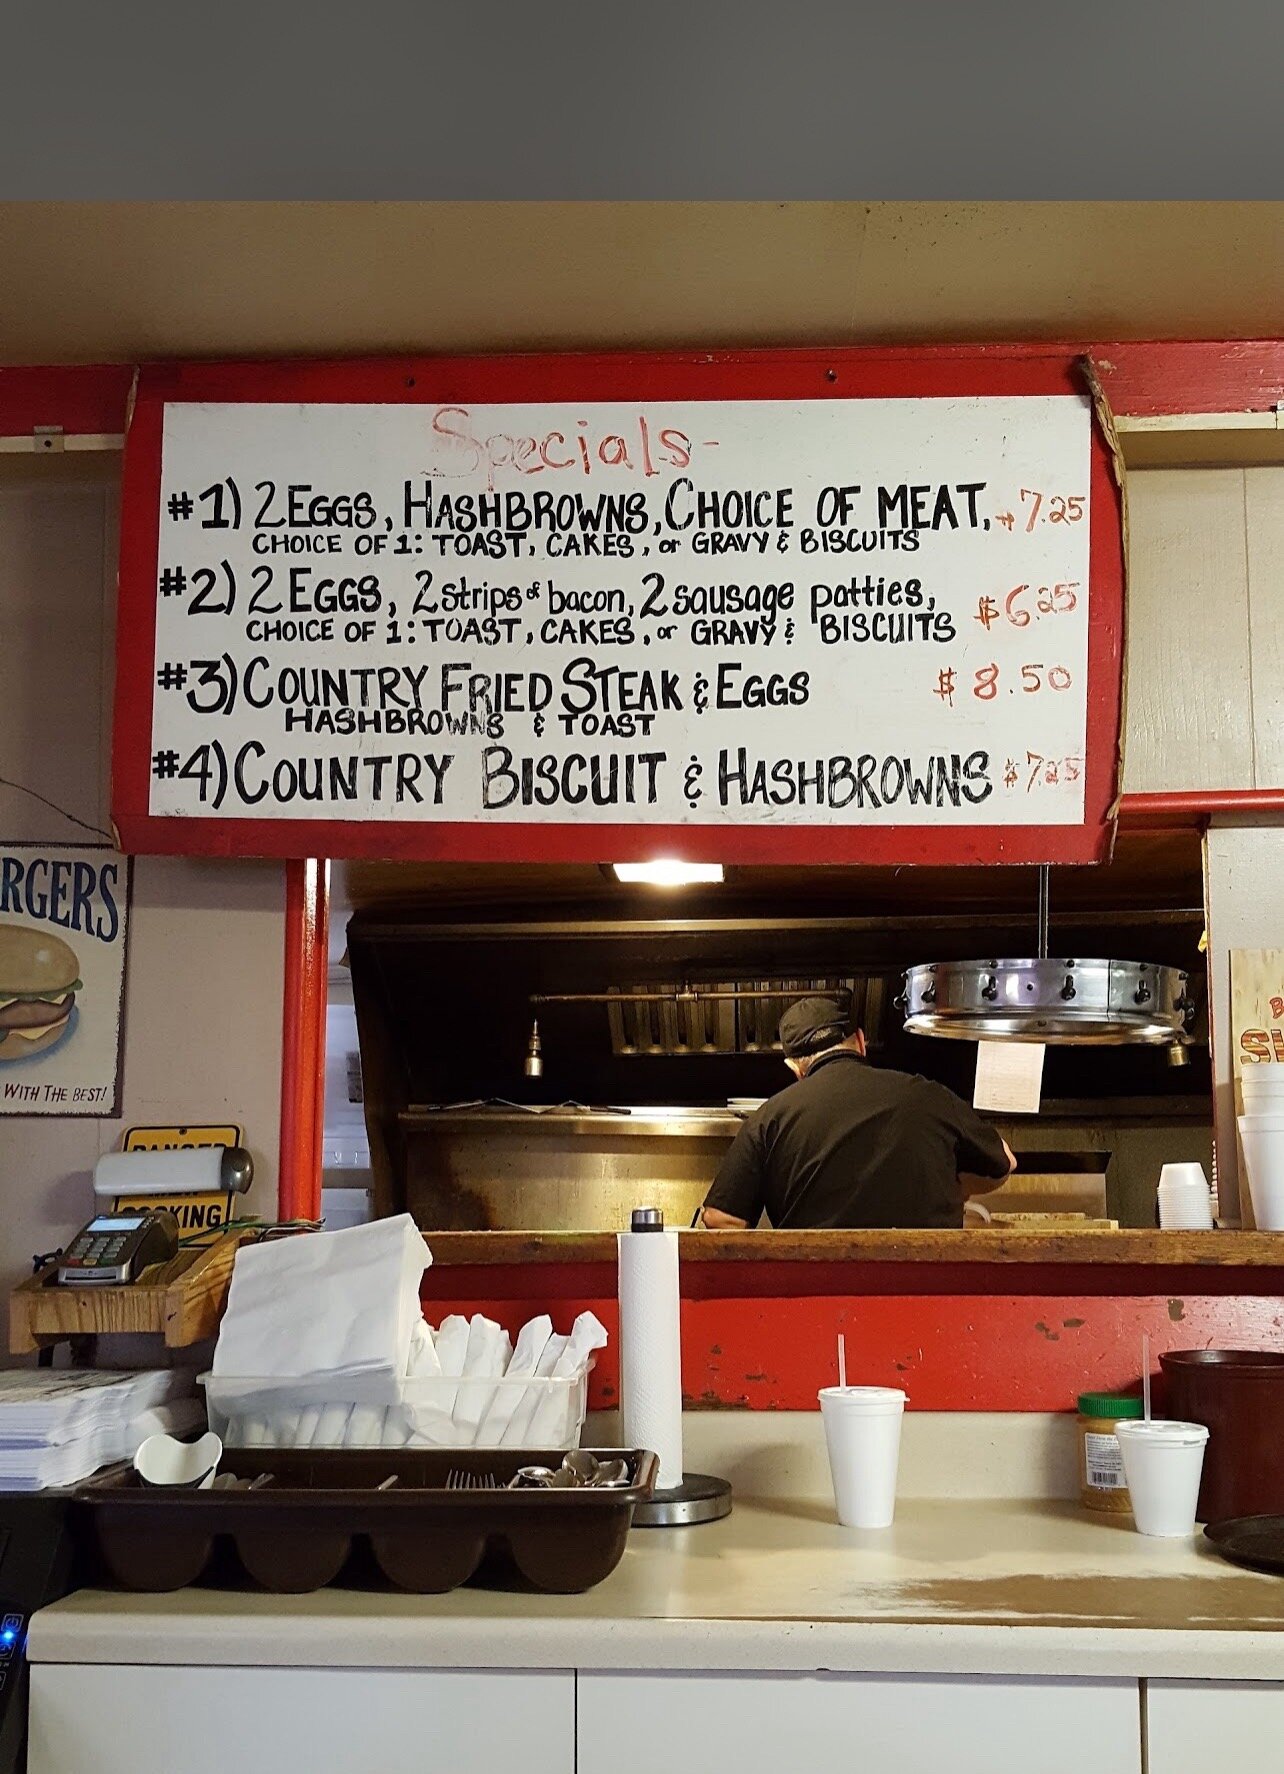 Specials-
#1) 2 EGGS, HASHBROWNS, CHOICE OF MEAT, $7.25
CHOICE OF 1: TOAST, CAKES, or GRAVY & BISCUITS
#2) 2 EGGS, 2 strips of bacon, 2 sausage patties, $6.25
CHOICE OF 1: TOAST, CAKES, or GRAVY & BISCUITS
#3) COUNTRY FRIED STEAK & EGGS $8.50
HASHBROWNS & TOAST
#4) COUNTRY BISCUIT & HASHBROWNS $7.25
RGERS
WITH THE BEST!
DANGER
KING